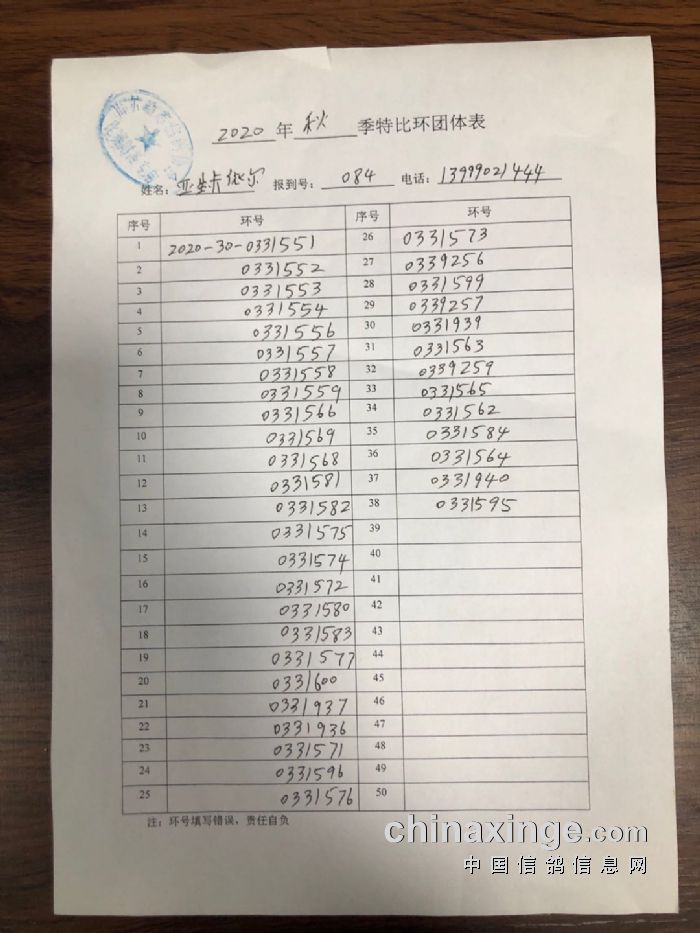 2020年秋季特比环团体表
姓名: 报到号: 084 电话: 13999021444
序号 环号 序号 环号
1 2020-30-0331551 26 0331573
2 0331552 27 0339256
3 0331553 28 0331599
4 0331554 29 0339257
5 0331556 30 0331939
6 0331557 31 0331563
7 0331558 32 0339259
8 0331559 33 0331565
9 0331566 34 0331562
10 0331569 35 0331584
11 0331568 36 0331564
12 0331581 37 0331940
13 0331582 38 0331595
14 0331575 39
15 0331574 40
16 0331572 41
17 0331580 42
18 0331583 43
19 0331577 44
20 0331600 45
21 0331937 46
22 0331936 47
23 0331571 48
24 0331596 49
25 0331576 50
注: 环号填写错误，责任自负
chinaxinge.com
中国信鸽信息网